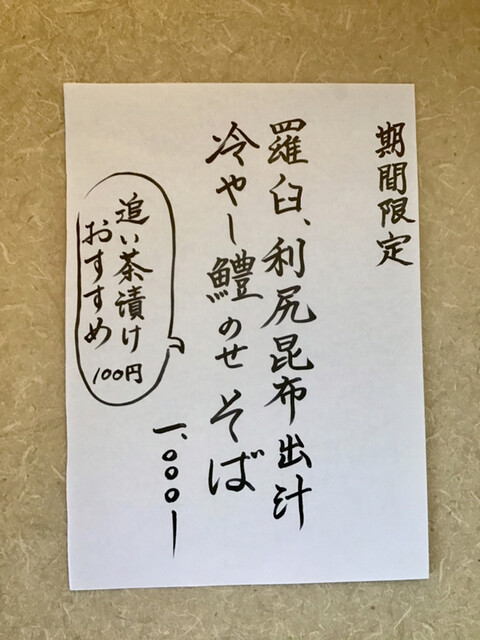 期間限定
羅臼、利尻昆布出汁
冷やし鱧のせそば
一、〇〇〇ー
追い茶漬け
おすすめ
100円